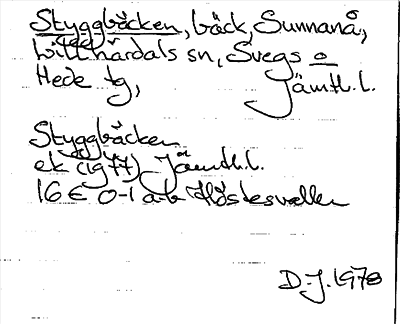 Styggbäcken, bäck, Sunnanå,
Lillhärdals sn, Svegs o
Hede tg, Jämtl. l.
Styggbäcken
ek (1977) Jämtl. l.
16 E 0-1 a-b Höstesvallen
D.-J. 1978